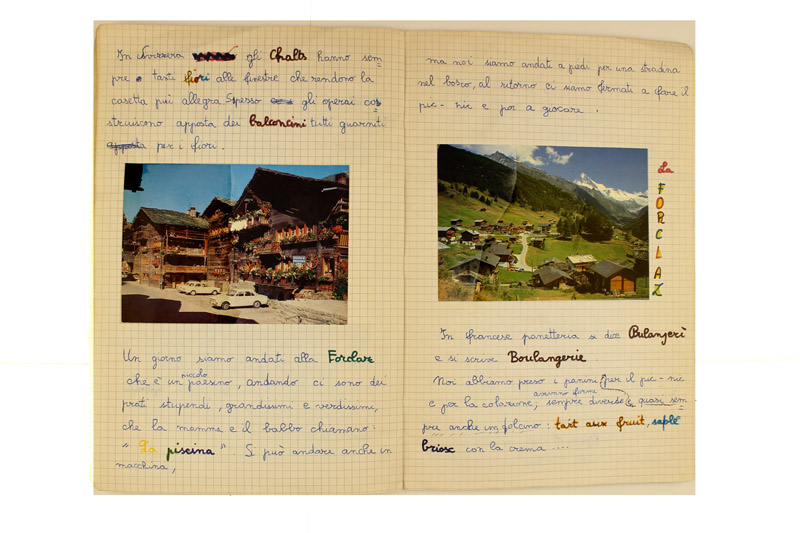 In Svizzera gli Chalts hanno sem=
pre tanti fiori alle finestre che rendono la
casetta più allegra. Spesso gli operai cos
struiscono apposta dei balconcini tutti guarniti
apposta per i fiori.
Un giorno siamo andati alla Forclaz
piccolo
che è un paesino, andando ci sono dei
prati stupendi, grandissimi e verdissimi,
che la mamma e il babbo chiamano:
"La piscina" Si può andare anche in
macchina,
ma noi siamo andati a piedi per una stradina
nel bosco, al ritorno ci siamo fermati a fare il
pic-nic e poi a giocare.
La
FORCLAZ
In francese panetteria si dice Bulanjerì
e si scrive Boulangerie
Noi abbiamo preso i panini, per il pic-nic
avevano forme
e per la colazione, sempre diverse e quasi sem
pre anche un dolcino: tart aux fruit, sable
briosc con la crema ....